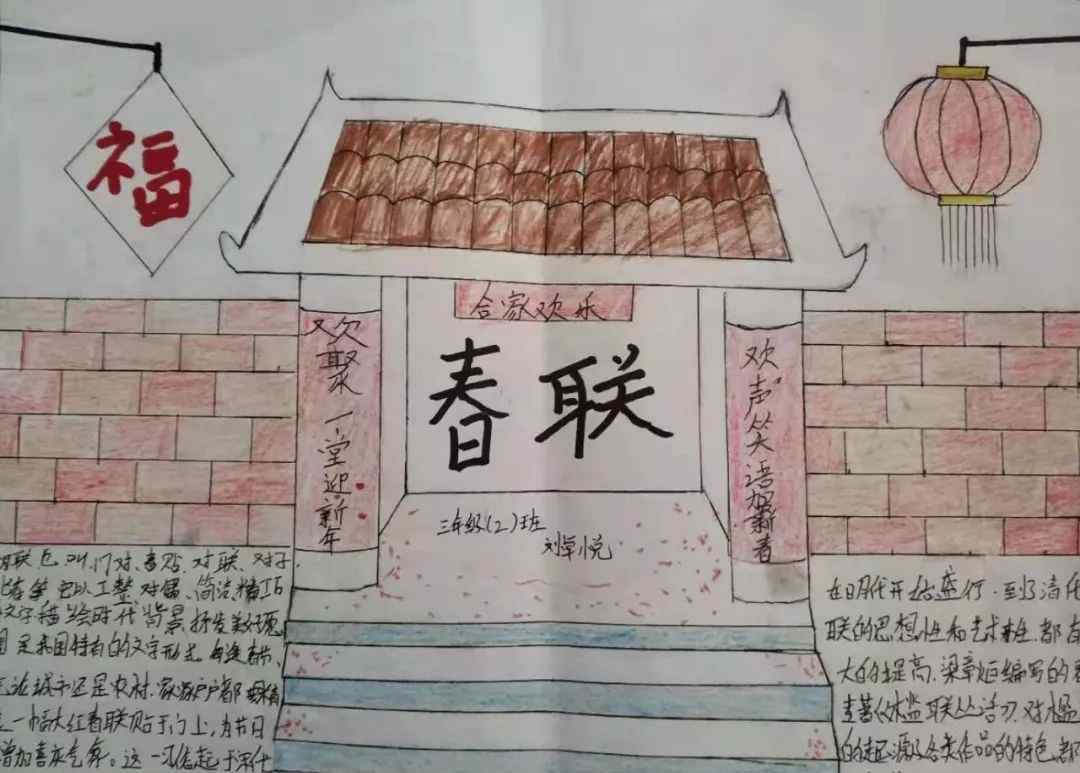 福
合家欢乐
春联
欢聚一堂迎新年
欢声笑语贺新春
三年级(2)班
刘卓悦
联 叫门对、春贴、对联、对子
以工整、对偶、简洁、精巧
文字描绘时代背景,抒发美好愿
是我国特有的文学形式,每逢春节、
论城市还是农村,家家户户都要
一幅大红春联贴于门上,为节日
增加喜庆气氛。这一习俗起于宋代
在明代开始盛行,到了清代
联的思想性和艺术性都有
大的提高,梁章矩编写的春
专著《槛联丛话》对楹
的起源及各类作品的特色都